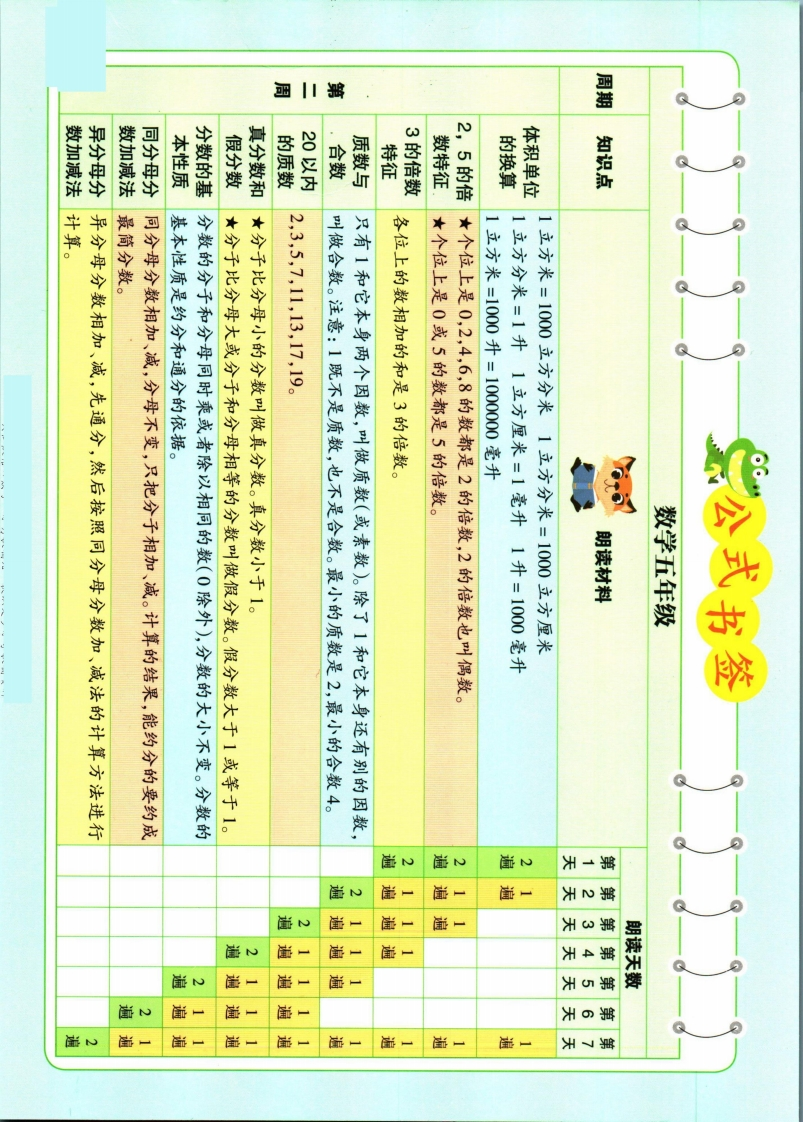 公式书签
数学五年级
周期 知识点 朗读材料 朗读天数
第1天 第2天 第3天 第4天 第5天 第6天 第7天
第二周
体积单位的换算
1立方米=1000立方分米 1立方分米=1000立方厘米
1立方分米=1升 1立方厘米=1毫升 1升=1000毫升
1立方米=1000升=1000000毫升
2遍 1遍 1遍
2,5的倍数特征
★个位上是0,2,4,6,8的数都是2的倍数,2的倍数也叫偶数。
★个位上是0或5的数都是5的倍数。
2遍 1遍 1遍 1遍
3的倍数特征
各位上的数相加的和是3的倍数。
2遍 1遍 1遍 1遍 1遍
质数与合数
只有1和它本身两个因数,叫做质数(或素数)。除了1和它本身还有别的因数,
叫做合数。注意:1既不是质数,也不是合数。最小的质数是2,最小的合数4。
2遍 1遍 1遍 1遍 1遍
20以内的质数
2,3,5,7,11,13,17,19。
2遍 1遍 1遍 1遍 1遍
真分数和假分数
★分子比分母小的分数叫做真分数。真分数小于1。
★分子比分母大或分子和分母相等的分数叫做假分数。假分数大于1或等于1。
2遍 1遍 1遍 1遍
分数的基本性质
分数的分子和分母同时乘或者除以相同的数(0除外),分数的大小不变。分数的
基本性质是约分和通分的依据。
2遍 1遍 1遍
同分母分数加减法
同分母分数相加、减,分母不变,只把分子相加、减。计算的结果,能约分的要约成
最简分数。
2遍 1遍
异分母分数加减法
异分母分数相加、减,先通分,然后按照同分母分数加、减法的计算方法进行
计算。
2遍